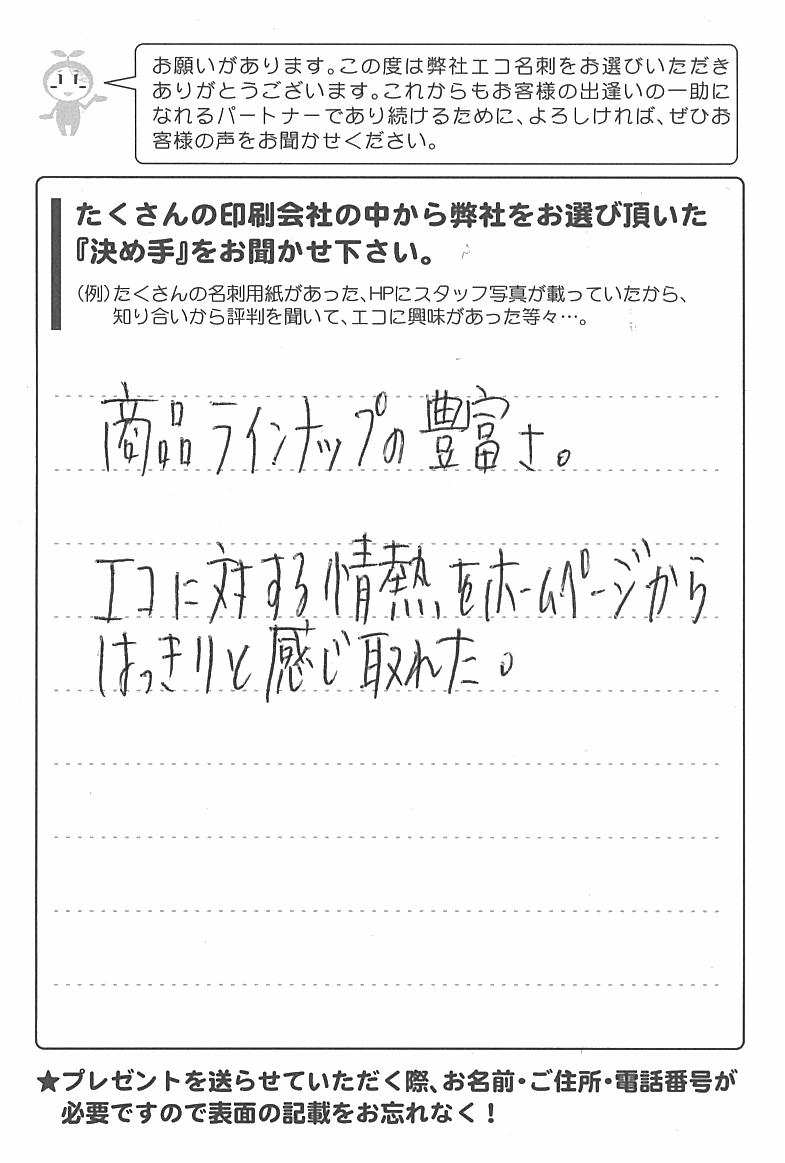 お願いがあります。この度は弊社エコ名刺をお選びいただき
ありがとうございます。これからもお客様の出逢いの一助に
なれるパートナーであり続けるために、よろしければ、ぜひお
客様の声をお聞かせください。
たくさんの印刷会社の中から弊社をお選び頂いた
『決め手』をお聞かせ下さい。
(例)たくさんの名刺用紙があった、HPにスタッフ写真が載っていたから、
知り合いから評判を聞いて、エコに興味があった等々…。
商品ラインナップの豊富さ。
エコに対する情熱をホームページから
はっきりと感じ取れた。
★プレゼントを送らせていただく際、お名前・ご住所・電話番号が
必要ですので表面の記載をお忘れなく！